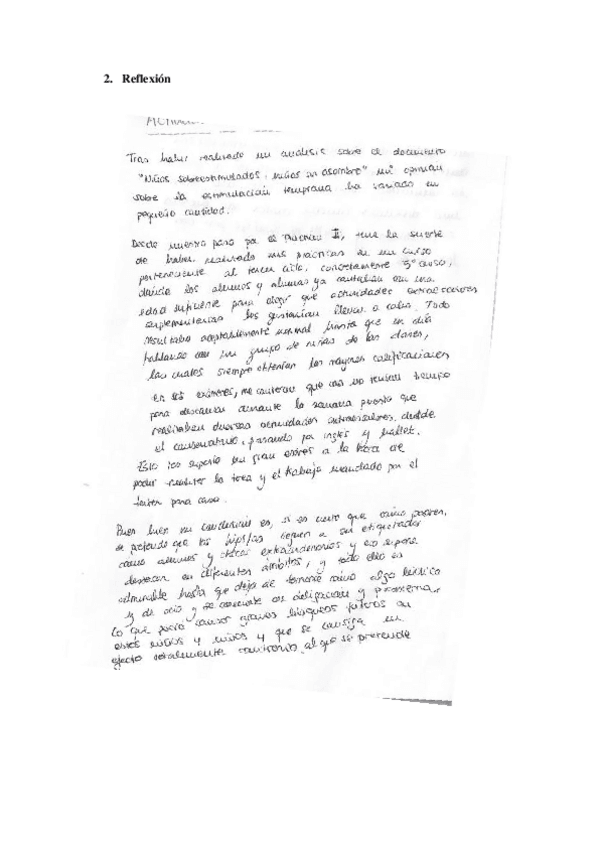 2. Reflexión
Tras haber realizado un análisis sobre el documento
"Niños sobreestimulados, niños sin asombro" mi opinión
sobre la estimulación temprana ha variado en
pequeña cantidad.
Desde nuestro paso por el Practicum II, tuve la suerte
de haber realizado mis prácticas en un curso
perteneciente al tercer ciclo, concretamente 5º curso,
donde los alumnos y alumnas ya contaban con una
edad suficiente para elegir que actividades extraescolares
suplementarias les gustarían llevar a cabo. Todo
resultaba aceptablemente normal hasta que un día
hablando con un grupo de niñas de las clases,
las cuales siempre obtenían las mayores calificaciones
en los exámenes, me contaron que casi no tenían tiempo
para descansar durante la semana puesto que
realizaban diversas actividades extraescolares, desde
el conservatorio, pasando por inglés y ballet.
Esto les suponía un gran estrés a la hora de
poder realizar la tarea y el trabajo mandado por el
tutor para casa.
Pues bien mi conclusión es, si es cierto que como padres,
se pretende que los hijos/as lleguen a ser etiquetados
como alumnos y extraordinarios y se espera
destacar en diferentes ámbitos, y todo ello es
admirable hasta que deja de tomarse como algo lúdico
y de ocio y se convierte en obligación y problema,
lo que podría causar graves bloqueos futuros en
estos niños y niñas y que se consiga un
efecto totalmente contrario al que se pretende